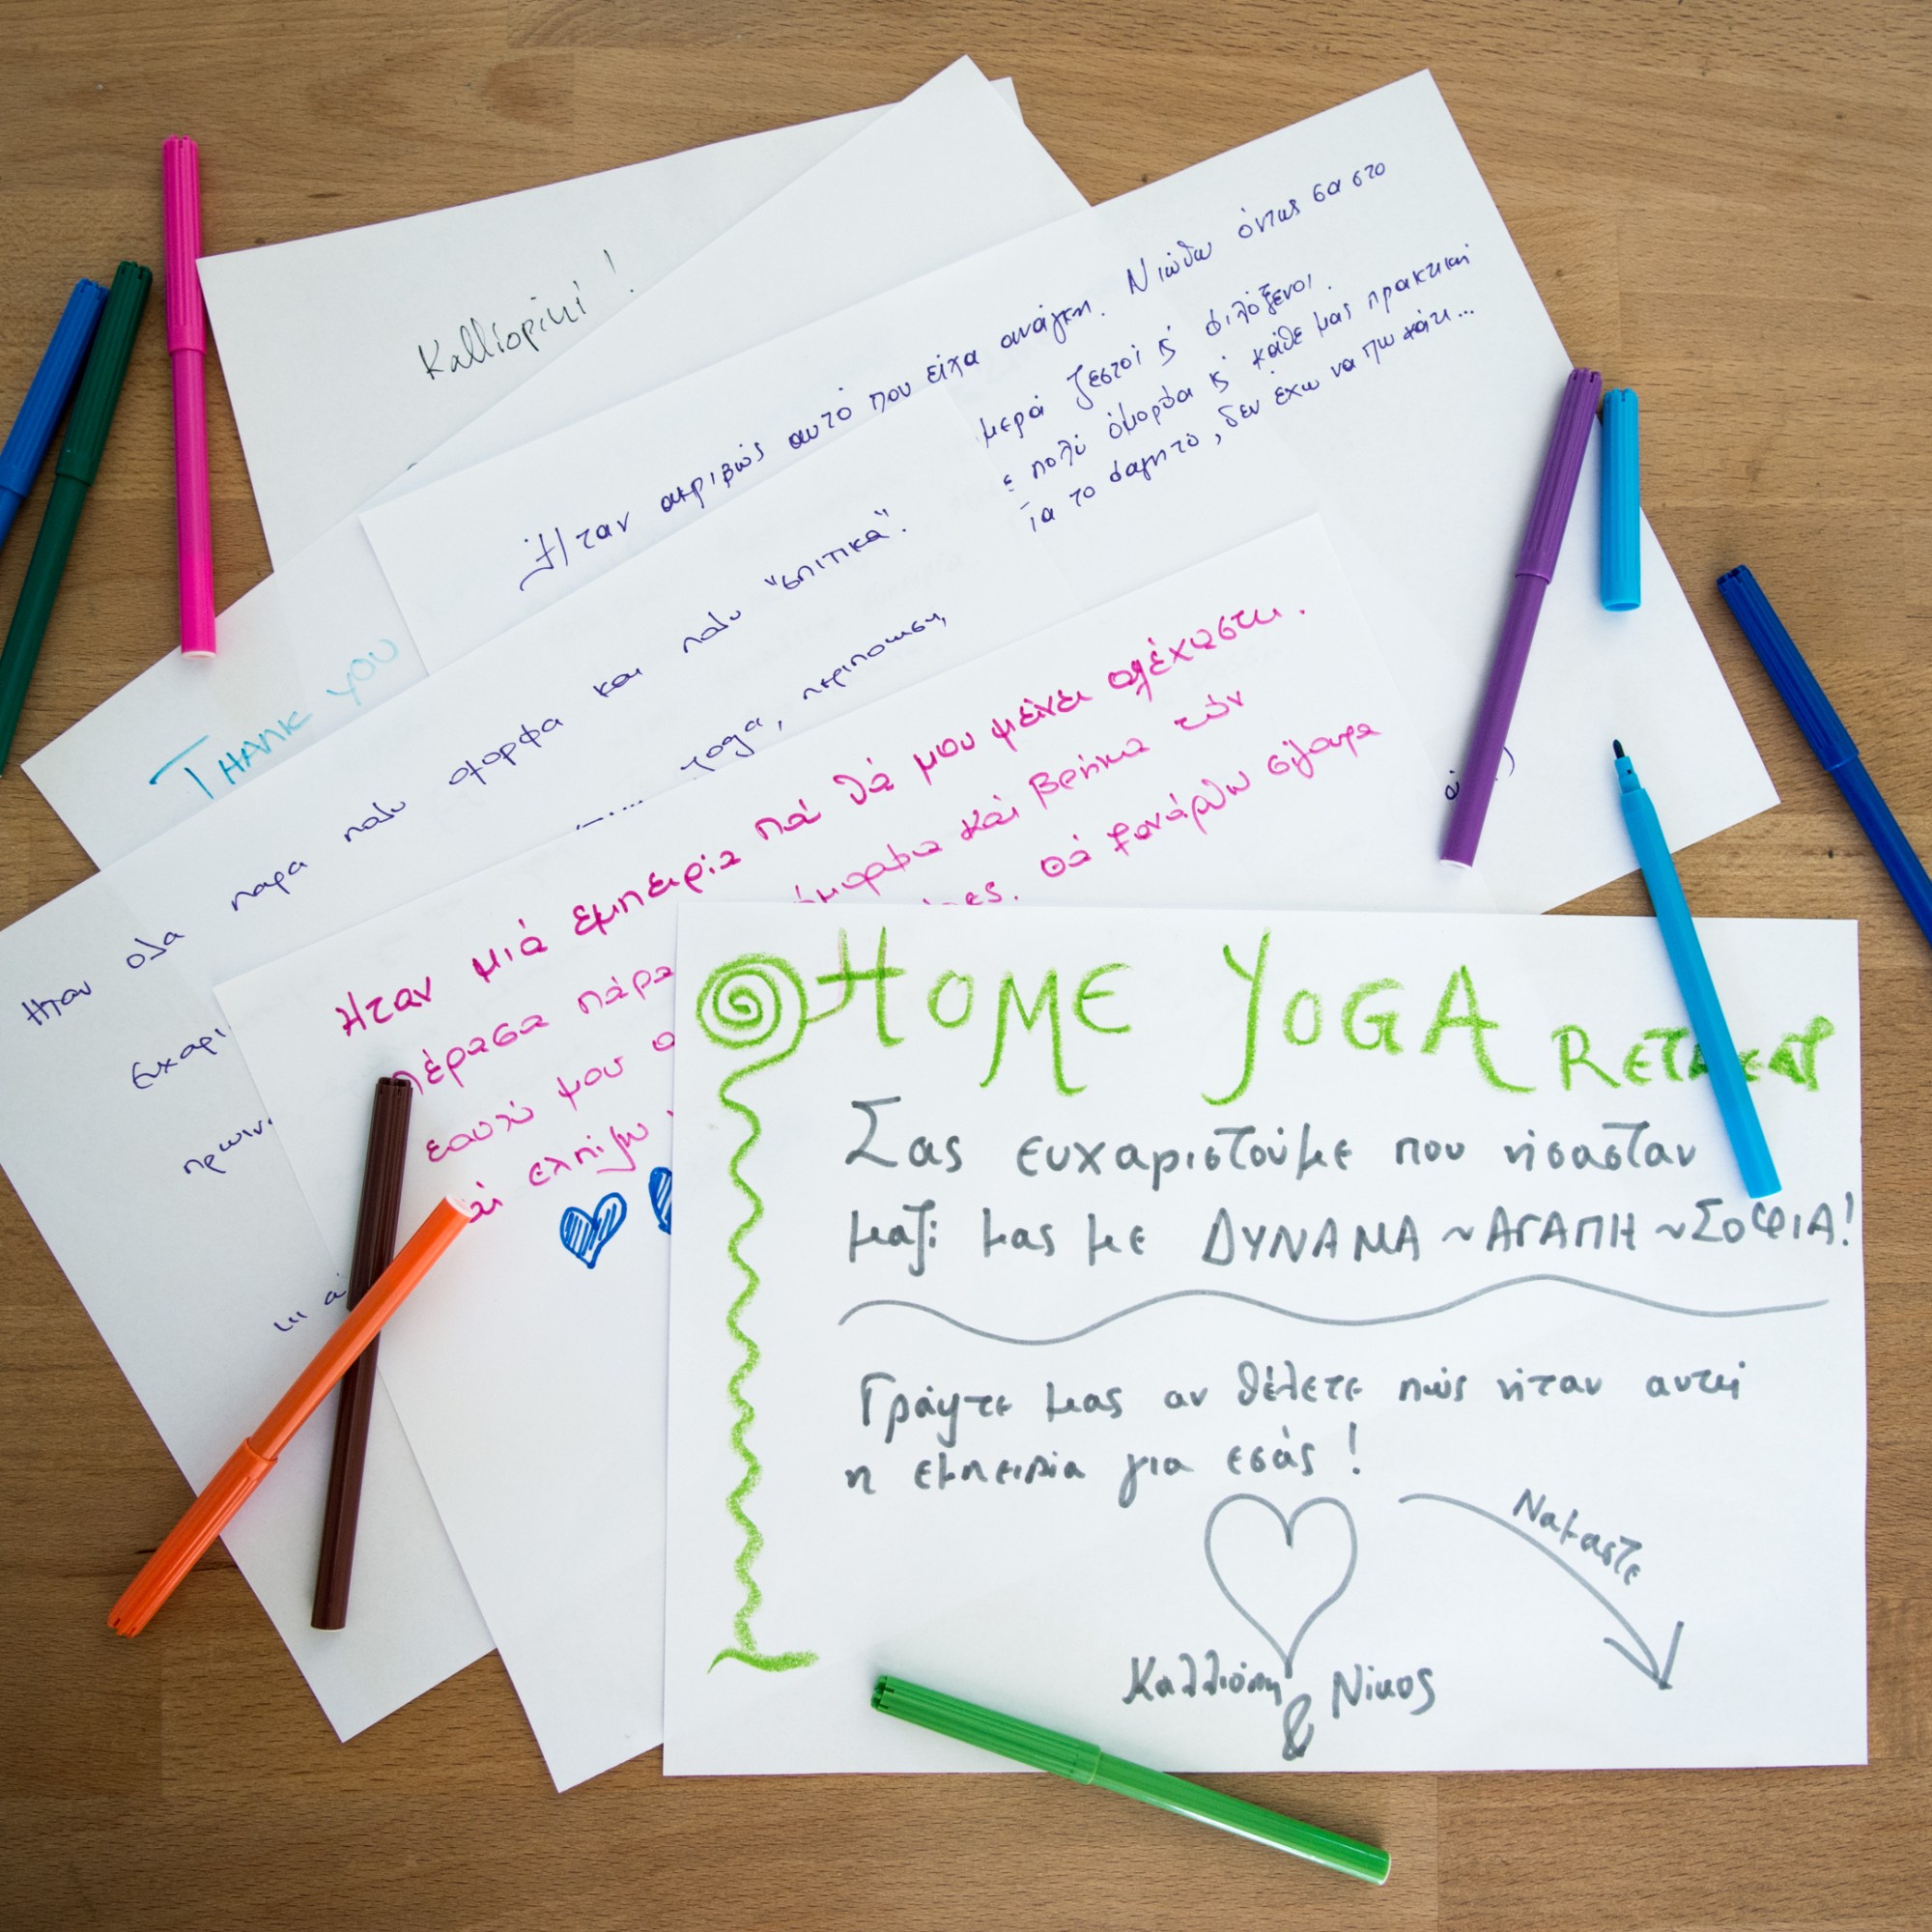 Kalliopiki!
Ήταν ακριβώς αυτό που είχα ανάγκη. Νιώθω όντως σα στο
μερα ζεστοί κ φιλόξενοι.
ε πολύ όμορφα κ κάθε μας πρακτική
ια το φαγητό, δεν έχω να πω κάτι...
THANK YOU
Ηταν ολα παρα πολυ ομορφα και πολυ "σπιτικα".
Ευχαρι
yoga, περιποιηση,
πρωιν
Ηταν μιά εμπειρία πού θά μου μείνει αξέχαστη.
πέρασα πάρα
όμορφα καί βρήκα τόν
εαυτό μου
ρες. Θά ξανάρθω σίγουρα
αί ελπίζω
HOME YOGA RETREAT
Σας ευχαριστούμε που ήσασταν
μαζί μας με ΔΥΝΑΜΑ ~ ΑΓΑΠΗ ~ ΣΟΦΙΑ!
Γράψτε μας αν θέλετε πώς ήταν αυτή
η εμπειρία για εσάς!
Ναμαστε
Καλλιόπη & Νίκος